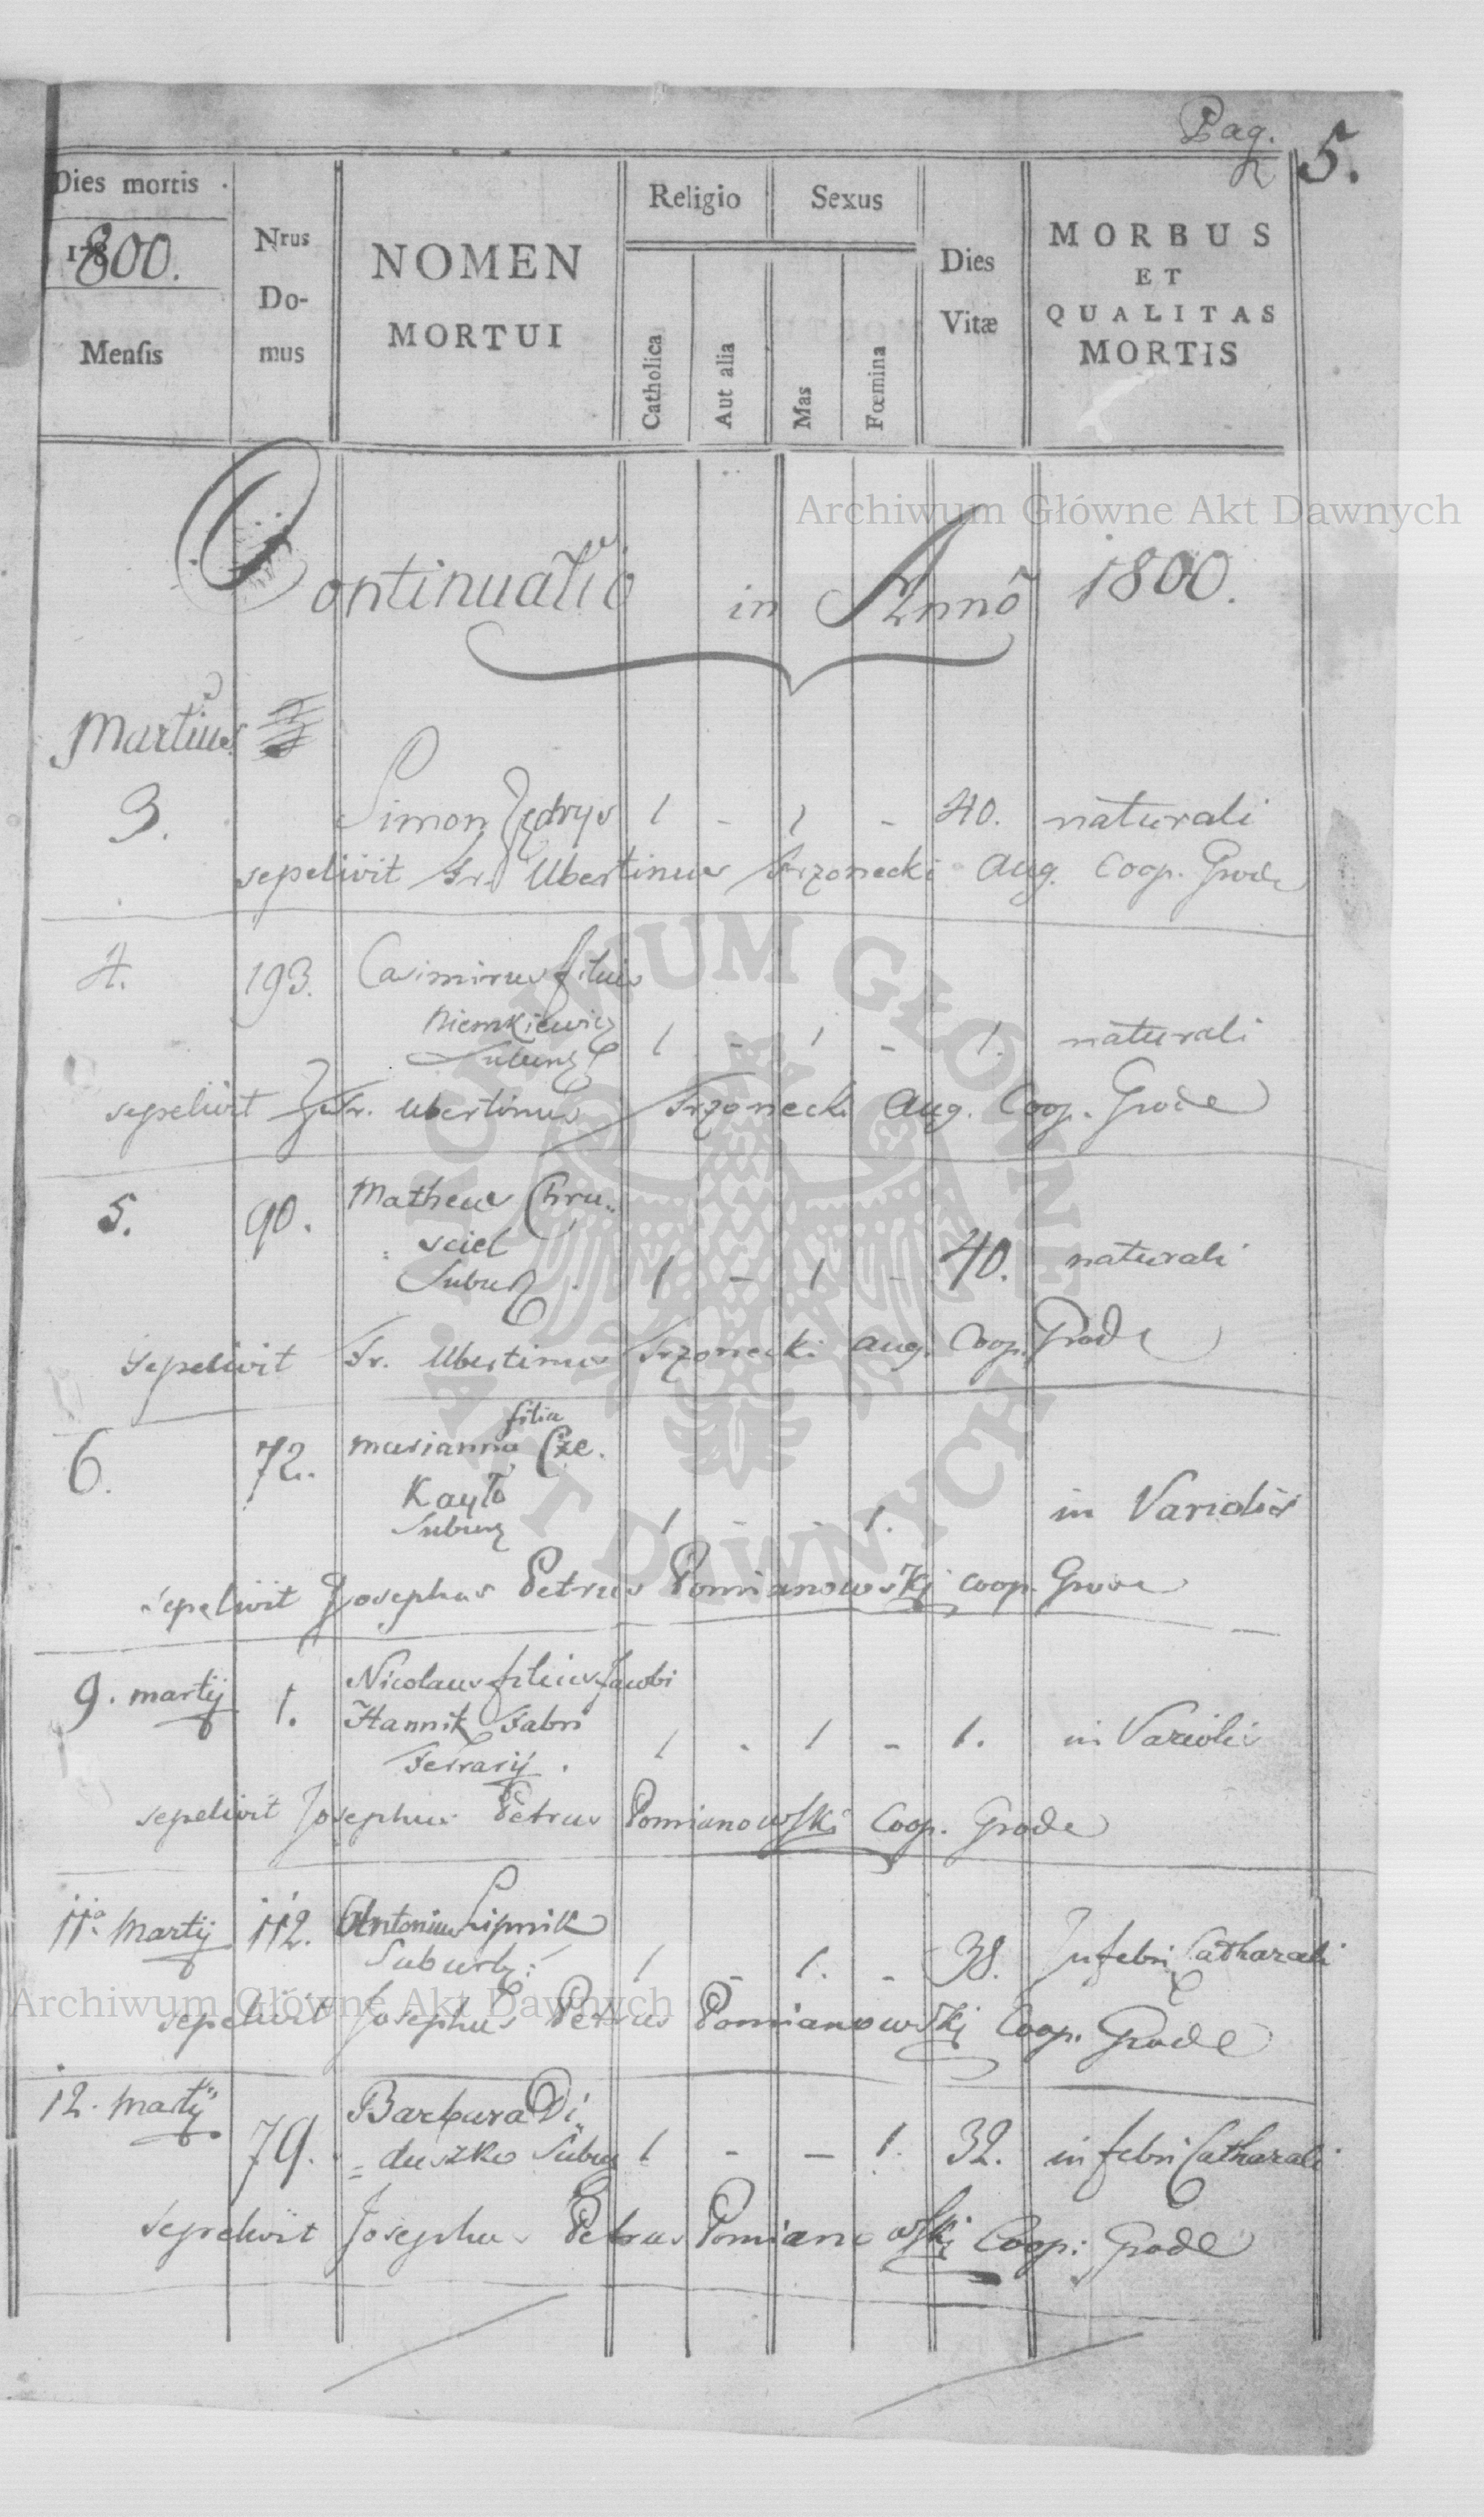 Pag. 5.
Dies mortis
1800.
Mensis
Nrus
Do-
mus
NOMEN
MORTUI
Religio
Catholica
Aut alia
Sexus
Mas
Fœmina
Dies
Vitæ
MORBUS
ET
QUALITAS
MORTIS
Archiwum Główne Akt Dawnych
Continuatio in Anno 1800.
Martius
3. Simon Jędrys 1 - 1 - 40. naturali
sepelivit Fr. Ubertinus Trzonecki Aug. Coop. Grode
4. 193. Casimirus filius
Niemkiewicz
Suburb 1 - 1 - 1. naturali
sepelivit Fr. Ubertinus Trzonecki Aug. Coop. Grode
5. 90. Matheus Chru„
sciel
Suburb. 1 - 1 - 40. naturali
Sepelivit Fr. Ubertinus Trzonecki Aug. Coop. Grode
filia
6. 72. Marianna Cze.
Kayło
Suburb 1 - - 1. in Variolis
sepelivit Josephus Petrus Pomianowski coop. Grode
9. martij 1. Nicolaus filius Jacobi
Hannik Fabri
Ferrarij. 1 - 1 - 1. in Variolis
sepelivit Josephus Petrus Pomianowski Coop. Grode
11a Martij 112. Antonius Lipnik
Suburb: 1 - 1. - 38. In febri Catharali
Archiwum Główne Akt Dawnych
sepelivit Josephus Petrus Pomianowski Coop. Grode
12. Martij
79. Barbara Di„
duszko Suburb 1 - - 1. 32. in febri Catharali
Sepelivit Josephus Petrus Pomianowski Coop: Grode
ARCHIWUM GŁÓWNE
AKT DAWNYCH